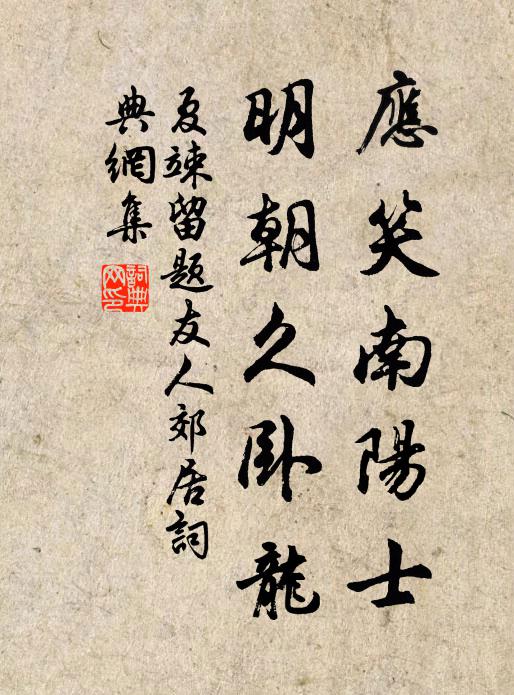 應笑南陽士
明朝久卧龍
夏竦留題友人郊居詞
典網集
詞典網印